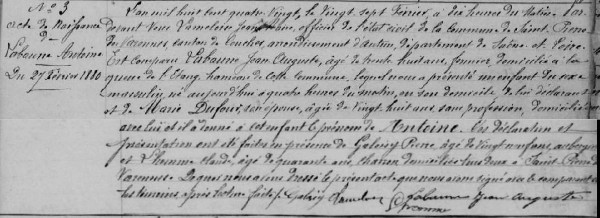 N° 3
Acte de Naissance
de
Labaune Antoine
Du 27 Février 1880
L'an mil huit cent quatre vingt, le vingt sept Février, à dix heures du Matin. Par
devant Nous Jean officier de l'état civil de la Commune de Saint Pierre
de Varennes, canton de Couches, arrondissement d'Autun, département de Saône et Loire
Est Comparu Labaune Jean Auguste, âgé de trente huit ans, domicilié à la
queue de l'Etang hameau de cette Commune, lequel nous a présenté un enfant du sexe
masculin, né aujourd'hui à quatre heures du matin, en son domicile de lui déclarant
et de Marie Dufour, son épouse, âgée de vingt huit ans, sans profession, domiciliée
avec lui et il a donné à cet enfant le prénom de Antoine. Ces déclaration et
présentation ont été faites en présence de Pierre, âgé de vingt neuf ans, aubergiste
et Claude, âgé de quarante ans, charron domiciliés tous deux à Saint Pierre de
Varennes. Lequel nous avons dressé le présent acte que nous avons signé avec le comparant et
les témoins, après lecture faite.
Labaune Jean Auguste